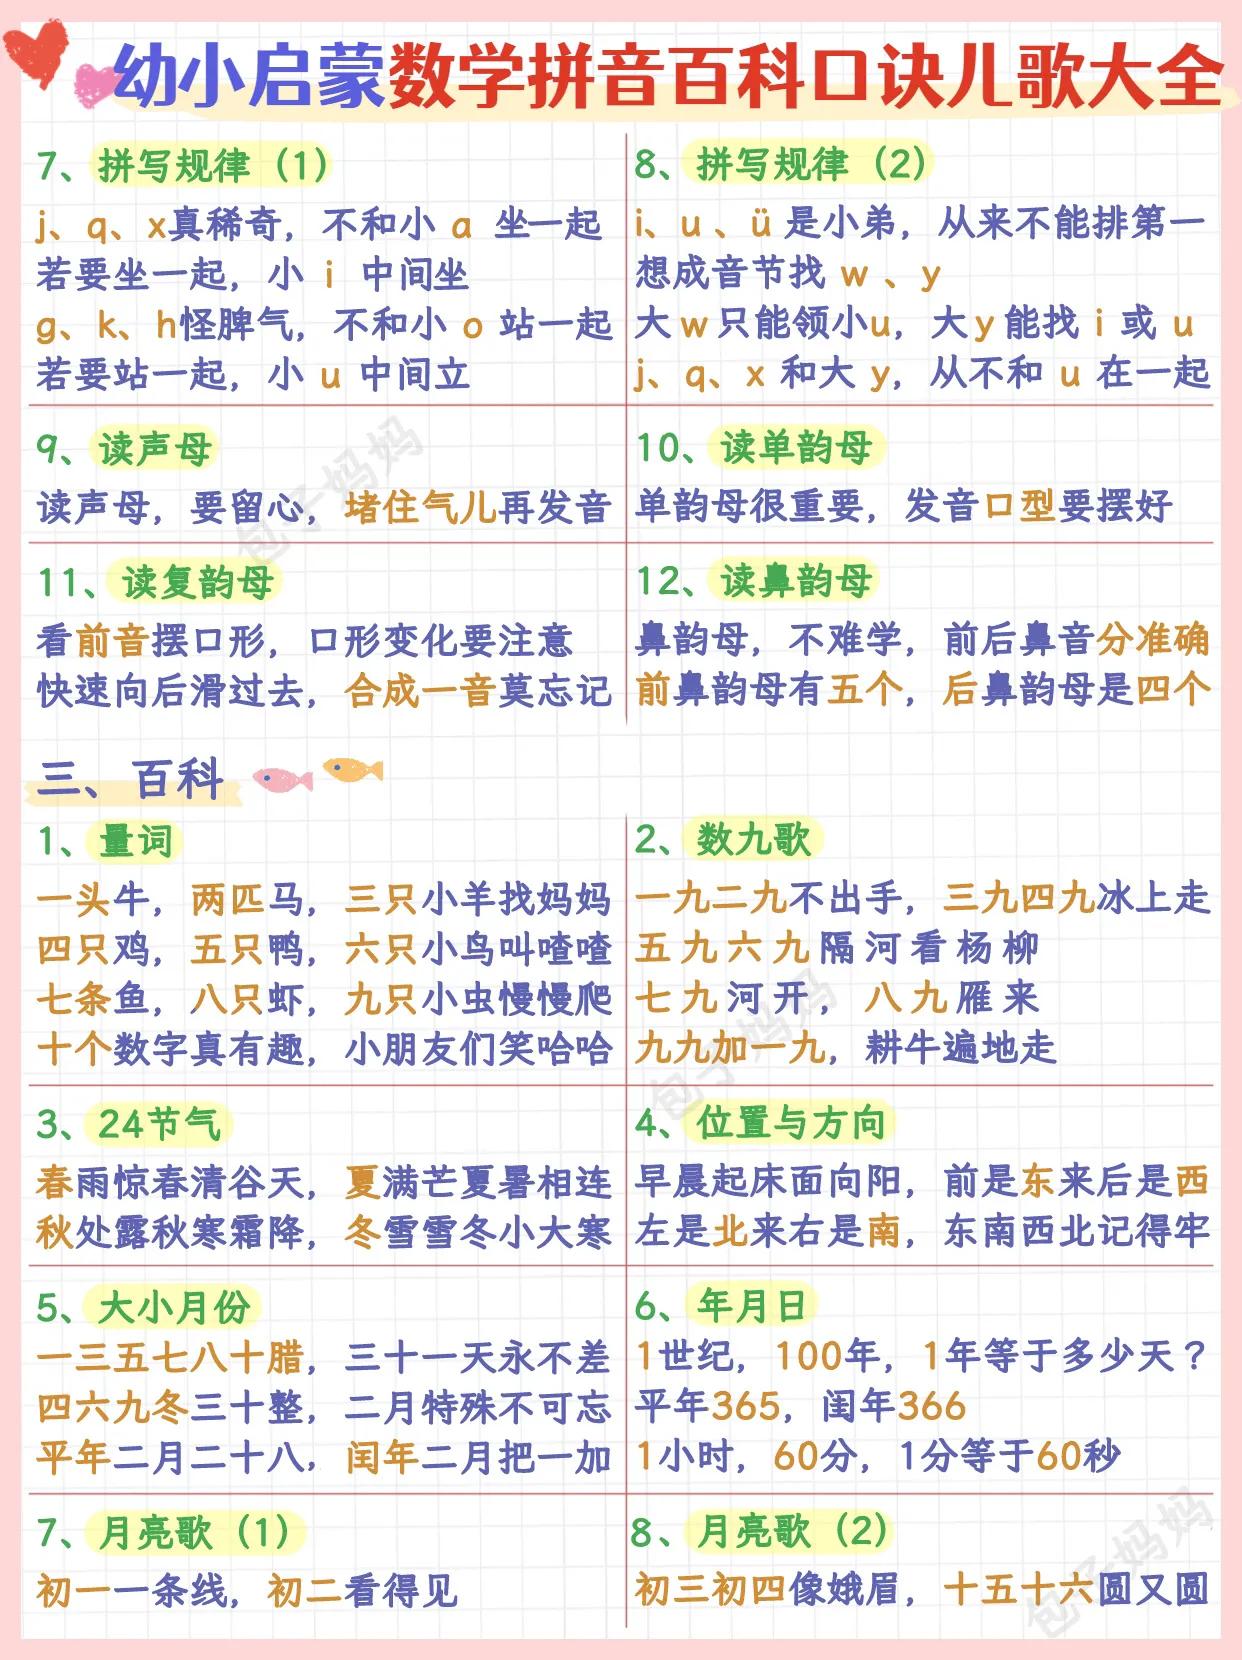 幼小启蒙数学拼音百科口诀儿歌大全
7、拼写规律（1）
j、q、x真稀奇，不和小 a 坐一起
若要坐一起，小 i 中间坐
g、k、h怪脾气，不和小 o 站一起
若要站一起，小 u 中间立
8、拼写规律（2）
i、u 、ü 是小弟，从来不能排第一
想成音节找 w 、y
大 w 只能领小u，大y 能找 i 或 u
j、q、x 和大 y，从不和 u 在一起
9、读声母
读声母，要留心，堵住气儿再发音
10、读单韵母
单韵母很重要，发音口型要摆好
11、读复韵母
看前音摆口形，口形变化要注意
快速向后滑过去，合成一音莫忘记
12、读鼻韵母
鼻韵母，不难学，前后鼻音分准确
前鼻韵母有五个，后鼻韵母是四个
三、百科
1、量词
一头牛，两匹马，三只小羊找妈妈
四只鸡，五只鸭，六只小鸟叫喳喳
七条鱼，八只虾，九只小虫慢慢爬
十个数字真有趣，小朋友们笑哈哈
2、数九歌
一九二九不出手，三九四九冰上走
五九六九隔河看杨柳
七九河开，八九雁来
九九加一九，耕牛遍地走
3、24节气
春雨惊春清谷天，夏满芒夏暑相连
秋处露秋寒霜降，冬雪雪冬小大寒
4、位置与方向
早晨起床面向阳，前是东来后是西
左是北来右是南，东南西北记得牢
5、大小月份
一三五七八十腊，三十一天永不差
四六九冬三十整，二月特殊不可忘
平年二月二十八，闰年二月把一加
6、年月日
1世纪，100年，1年等于多少天？
平年365，闰年366
1小时，60分，1分等于60秒
7、月亮歌（1）
初一一条线，初二看得见
8、月亮歌（2）
初三初四像娥眉，十五十六圆又圆
包子妈妈
包子妈妈
包子妈妈